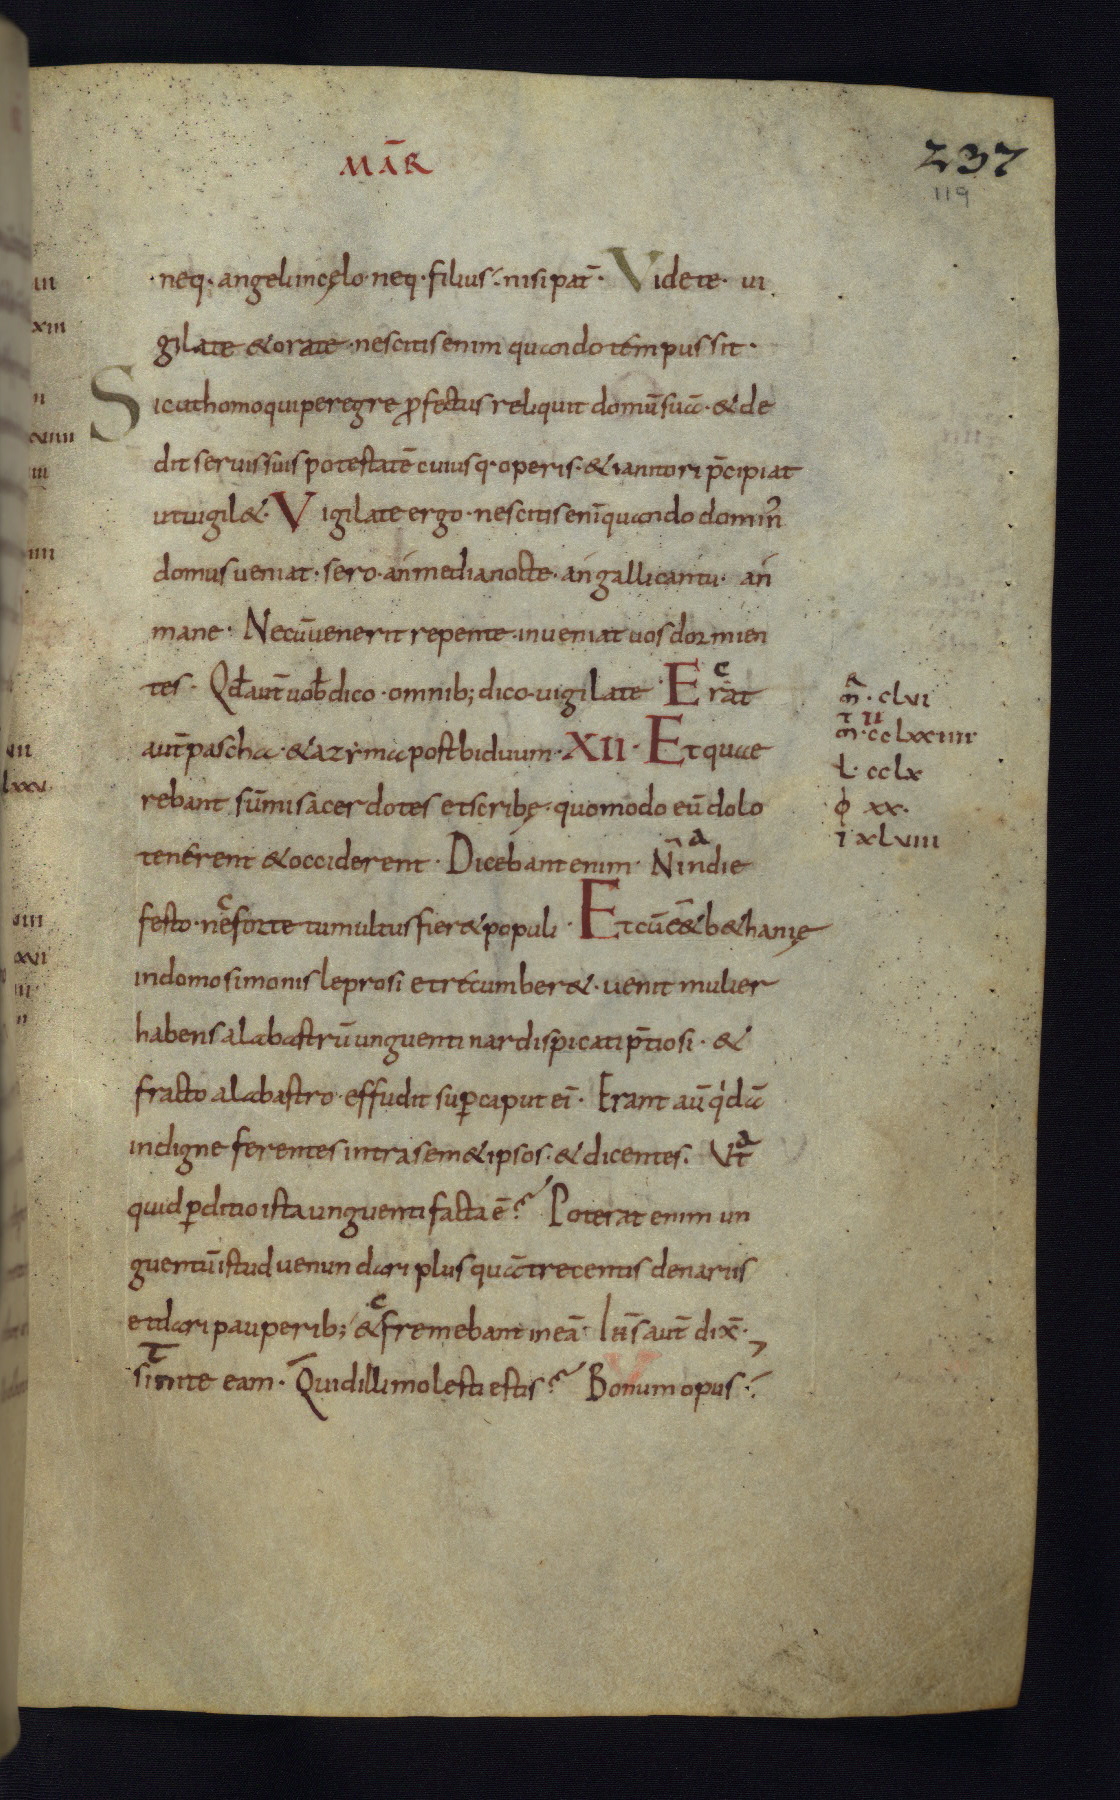 MAR̄
237
119
neq· angeli incęlo· neq· filius· nisi pat̄· Videte· ui
gilate & orate· nescitis enim quando tempus sit·
Sicut homo qui peregre ꝓfectus reliquit domū suā· & de
dit seruis suis potestatē cuiusq· operis· & ianitori p̄cipiat
ut uigil&· Vigilate ergo· nescitis enī quando domin᷒
domus ueniat· sero· an media nocte· an galli cantu· an
mane· Ne cū uenerit repente· inueniat uos dormien
tes· Qđ aut̄ uob̄ dico· omnib; dico· uigilate· Erat
aut̄ pascha· & azyma post biduum· XII· Et quae
rebant sūmi sacerdotes et scribę· quomodo eū dolo
tenerent & occiderent· Dicebant enim· N̄ in die
festo· ne forte tumultus fier& populi· Et cū ēēt b&hanię
in domo simonis leprosi et recumber&· uenit mulier
habens alabastrū unguenti nardi spicati p̄tiosi· &
fracto alabastro· effudit suꝑ caput ei᷒· Erant aū q̇dā
indigne ferentes intra sem&ipsos· & dicentes· Vt
quid ꝑditio ista unguenti facta ē? Poterat enim un
guentū istud uenundari plus quā trecentis denariis
et dari pauperib; & fremebant in eā· Ih̄s aut̄ dix̄·
sinite eam· Quid illi molesti estis? Bonum opus·
m̄· clvi
m̄· cclxxiiii·
L· cclx
ϕ xx·
i xlviii